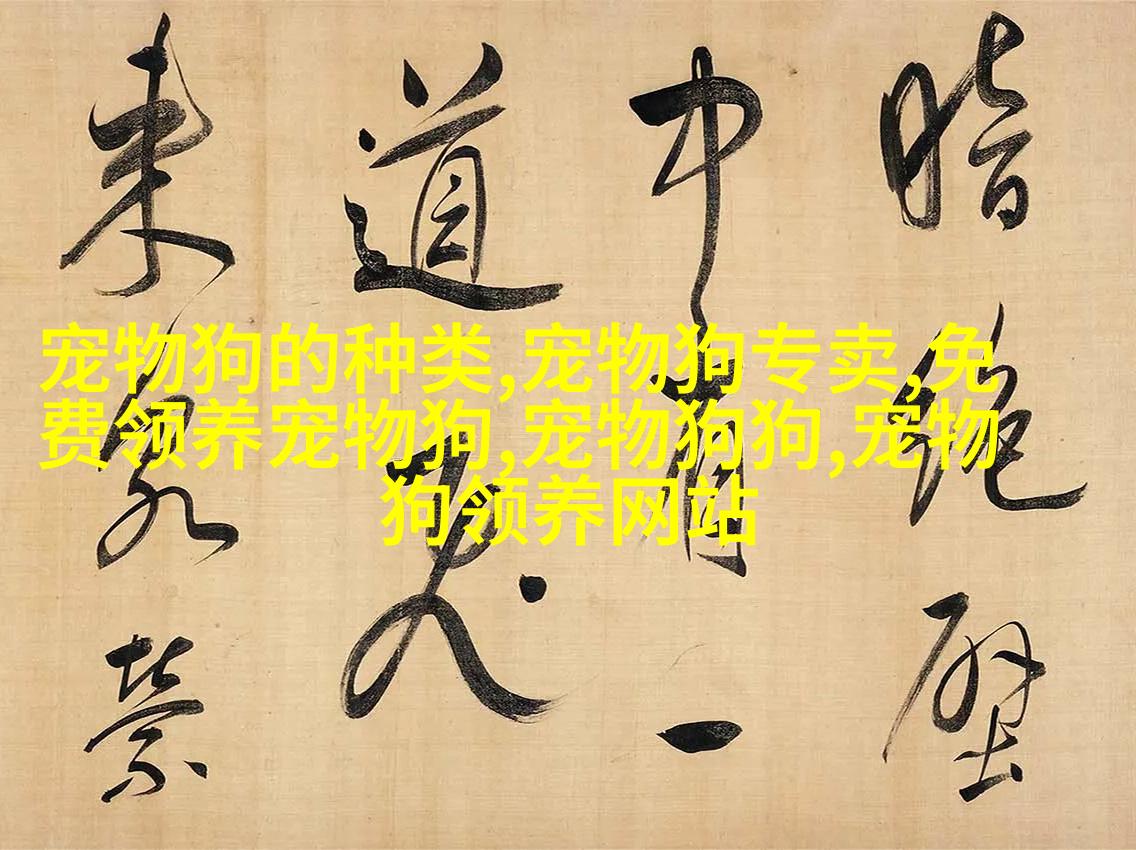 宠物狗的种类,宠物狗专卖,免
费领养宠物狗,宠物狗狗,宠物
狗领养网站
暗絕壁
中有一
道
来縈